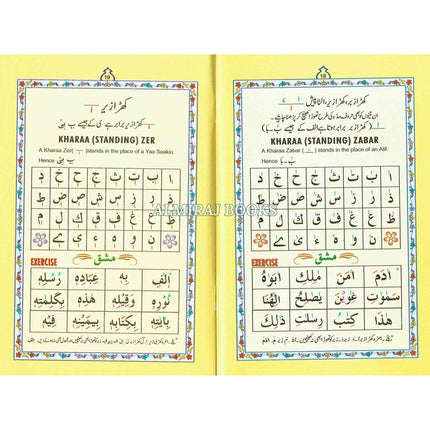 18
کھڑا زبر، کھڑا زیر، الٹا پیش
ان تینوں کو بھی حروف مدہ کی طرح تھوڑا کھینچ کر پڑھنا چاہیے۔
کھڑا زبر برابر ہوتا ہے الف کے جیسے بٰ بَا
KHARAA (STANDING) ZABAR
A Kharaa Zabar ( ٰ ) stands in the place of an Alif.
Hence بٰ بَا
اٰ بٰ تٰ ثٰ جٰ حٰ خٰ دٰ
ذٰ رٰ زٰ سٰ شٰ صٰ ضٰ طٰ
ظٰ عٰ غٰ فٰ قٰ كٰ لٰ مٰ
نٰ وٰ هٰ ءٰ يٰ ےٰ
EXERCISE مشق
اٰدَمَ اٰمَنَ مٰلِكِ اَبَوٰهُ
سَمٰوٰتٍ غٰوِيْنَ يٰصٰلِحُ اِلٰهُنَا
هٰذَا كِتٰبُ رِسٰلٰتِ ذٰلِكَ
19
کھڑا زیر
کھڑا زیر برابر ہے ی کے جیسے بٖ بِیْ
KHARAA (STANDING) ZER
A Kharaa Zer( ٖ )stands in the place of a Yaa Saakin.
Hence بٖ بِیْ
اٖ بٖ تٖ ثٖ جٖ حٖ خٖ دٖ
ذٖ رٖ زٖ سٖ شٖ صٖ ضٖ طٖ
ظٖ عٖ غٖ فٖ قٖ كٖ لٖ مٖ
نٖ وٖ هٖ ءٖ يٖ ےٖ
EXERCISE مشق
اٖلٰفِ بِهٖ عِبَادِهٖ رُسُلِهٖ
نُوْرِهٖ وَقِيْلِهٖ هٰذِهٖ بِكَلِمٰتِهٖ
بِاٰيٰتِهٖ بِكِتَابِهٖ بِيَمِيْنِهٖ فِيْهِ
ALMIRAJ BOOKS